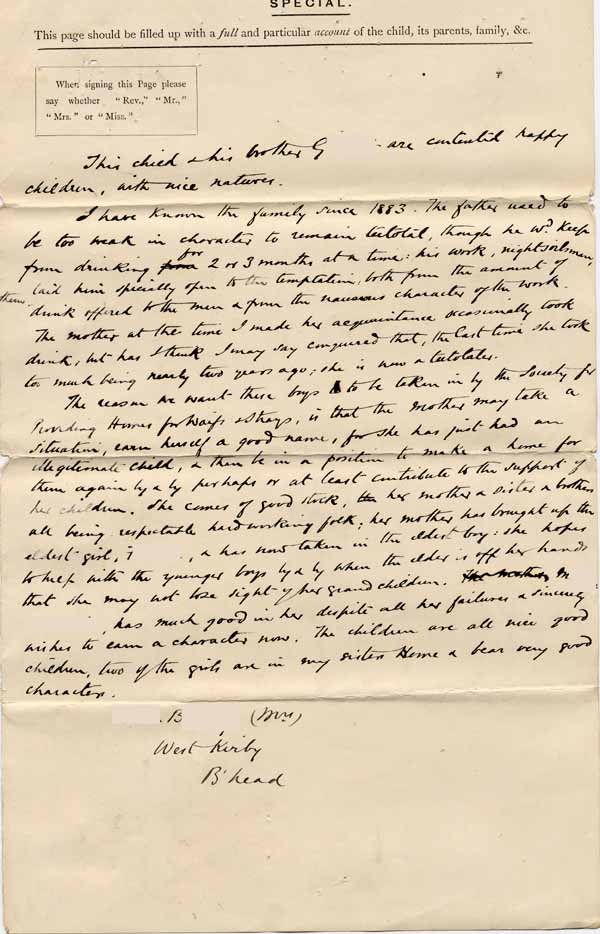 SPECIAL.
This page should be filled up with a full and particular account of the child, its parents, family, &c.
When signing this Page please
say whether "Rev.," "Mr.,"
"Mrs." or "Miss."
This child & his brother G are contented happy
children, with nice natures.
I have known the family since 1883. The father used to
be too weak in character to remain teetotal, though he wd. keep
from drinking from for 2 or 3 months at a time: his work, nightsoilman,
laid him specially open to the temptation, both from the amount of
them.
drink offered to the men & from the nauseous character of the work.
The mother at the time I made her acquaintance occasionally took
drink, but has I think I may say conquered that, the last time she took
too much being nearly two years ago; she is now a teetotaler.
The reason we want these boys to be taken in by the Society for
Providing Homes for Waifs & Strays, is that the mother may take a
situation, earn herself a good name, for she has just had an
illegitimate child, & then be in a position to make a home for
them again by & by perhaps or at least contribute to the support of
her children. She comes of good stock, her mother & sister & brothers
all being respectable hardworking folk; her mother has brought up the
eldest girl, , & has now taken in the eldest boy: she hopes
to help with the younger boys by & by when the elder is off her hands
that she may not lose sight of her grandchildren. The mother M
, has much good in her despite all her failures & sincerely
wishes to earn a character now. The children are all nice good
children, two of the girls are in my sisters Home & bear very good
characters.
. B (Mrs)
West Kirby
B'head